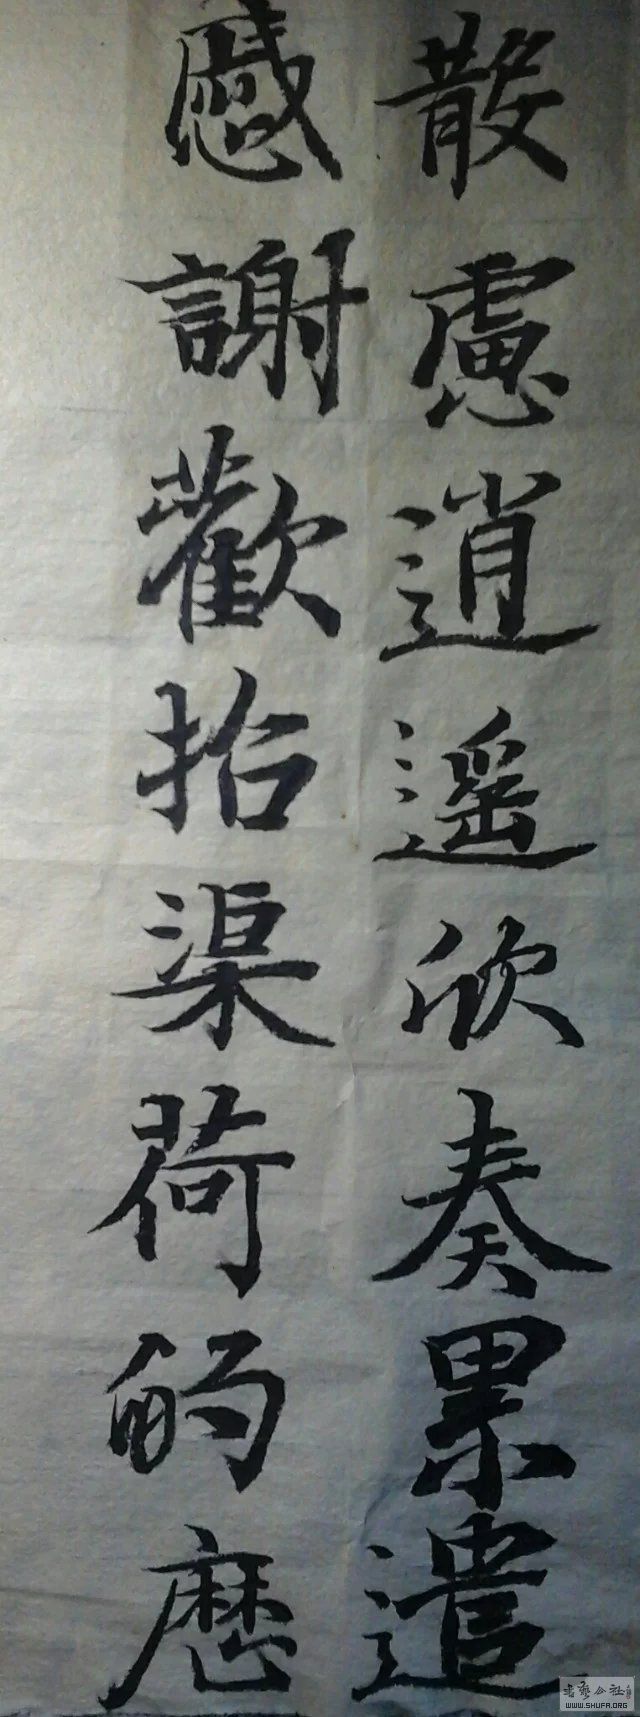 散慮逍遥欣奏累遣
慼謝歡招渠荷的歷
書藝公社
WWW.SHUFA.ORG